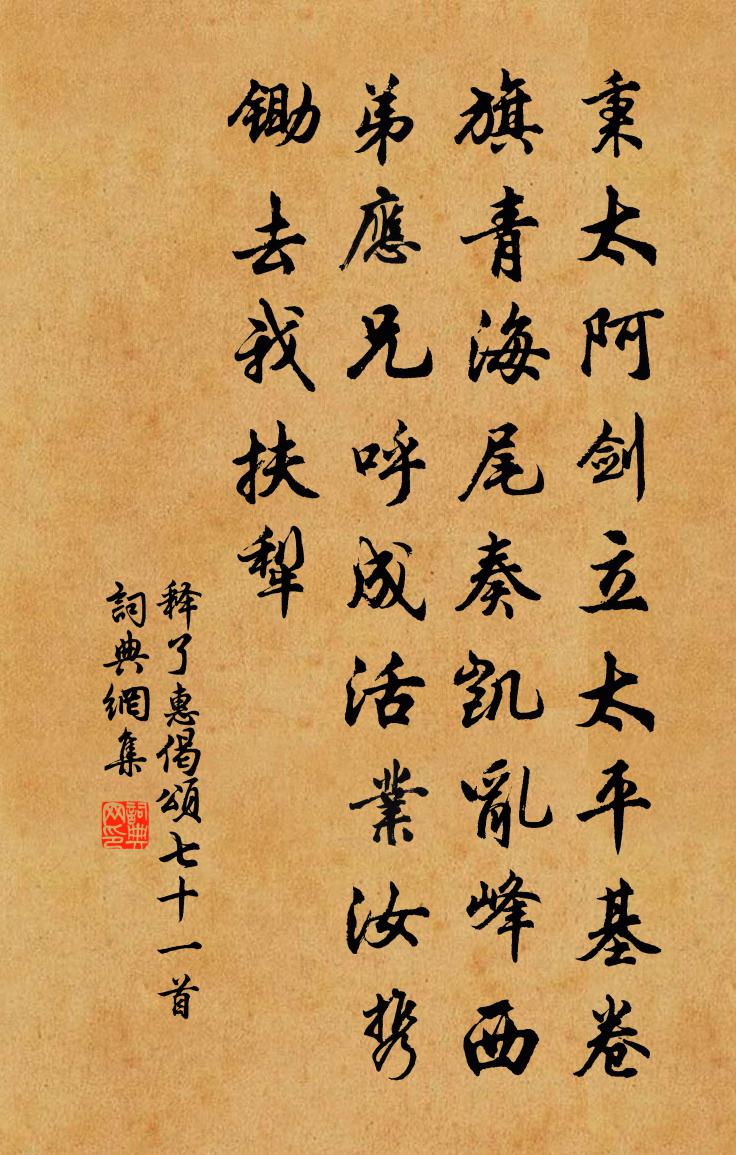 秉太阿剑立太平基卷
旗青海尾奏凯亂峰西
弟應兄呼成活業汝携
鋤去我扶犁
释了惠偈頌七十一首
詞典網集
詞典网印